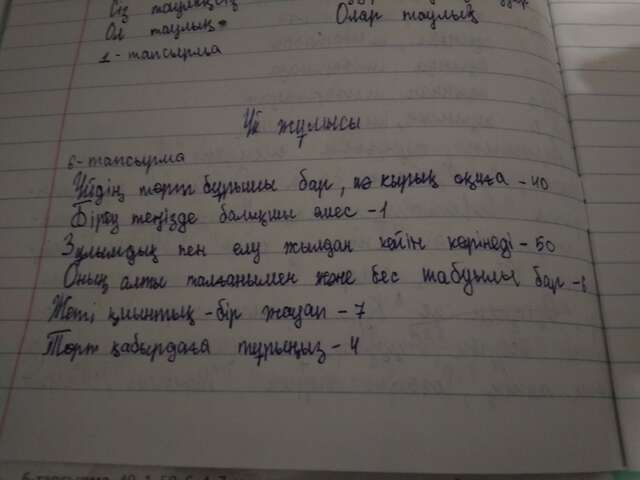 Сіз таулықсыз
Ол таулық
Олар таулық
1-тапсырма
Үй жұмысы
6-тапсырма
Үйдің төрт бұрышы бар, қырық оқиға - 40
Біреу теңізде балықшы емес - 1
Зұлымдық пен елу жылдан кейін көрінеді - 50
Оның алты талғанымен және бес шабуылы бар - 6
Жеті қиынтық - бір жазап - 7
Төрт қабырдаға тұрыңыз - 4